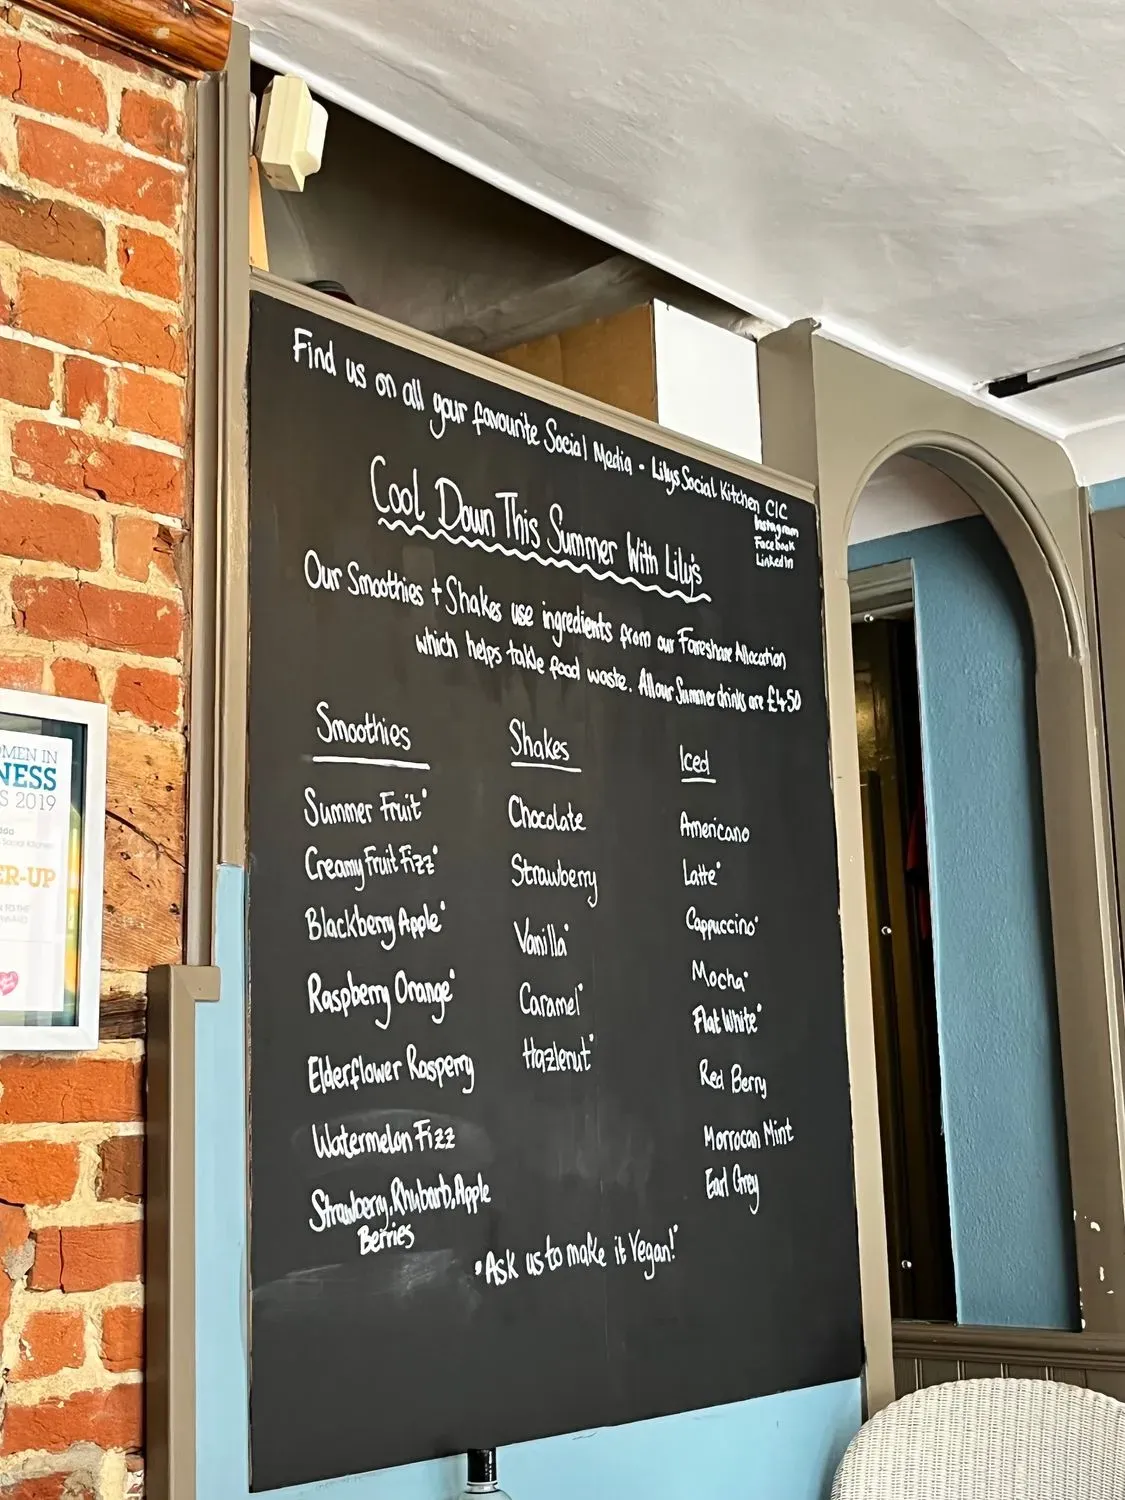 Find us on all your favourite Social Media - Lilys Social Kitchen CIC
Instagram
Facebook
LinkedIn
Cool Down This Summer With Lily's
Our Smoothies + Shakes use ingredients from our Fareshare Allocation
which helps takle food waste. All our Summer drinks are £4.50
Smoothies
Summer Fruit*
Creamy Fruit Fizz*
Blackberry Apple*
Raspberry Orange*
Elderflower Rasperry
Watermelon Fizz
Strawberry, Rhubarb, Apple
Berries
Shakes
Chocolate
Strawberry
Vanilla*
Caramel*
Hazlenut*
Iced
Americano
Latte*
Cappuccino*
Mocha*
Flat White*
Red Berry
Morrocan Mint
Earl Grey
*Ask us to make it Vegan!*
OMEN IN
NESS
S 2019
Social Kitchen
ER-UP